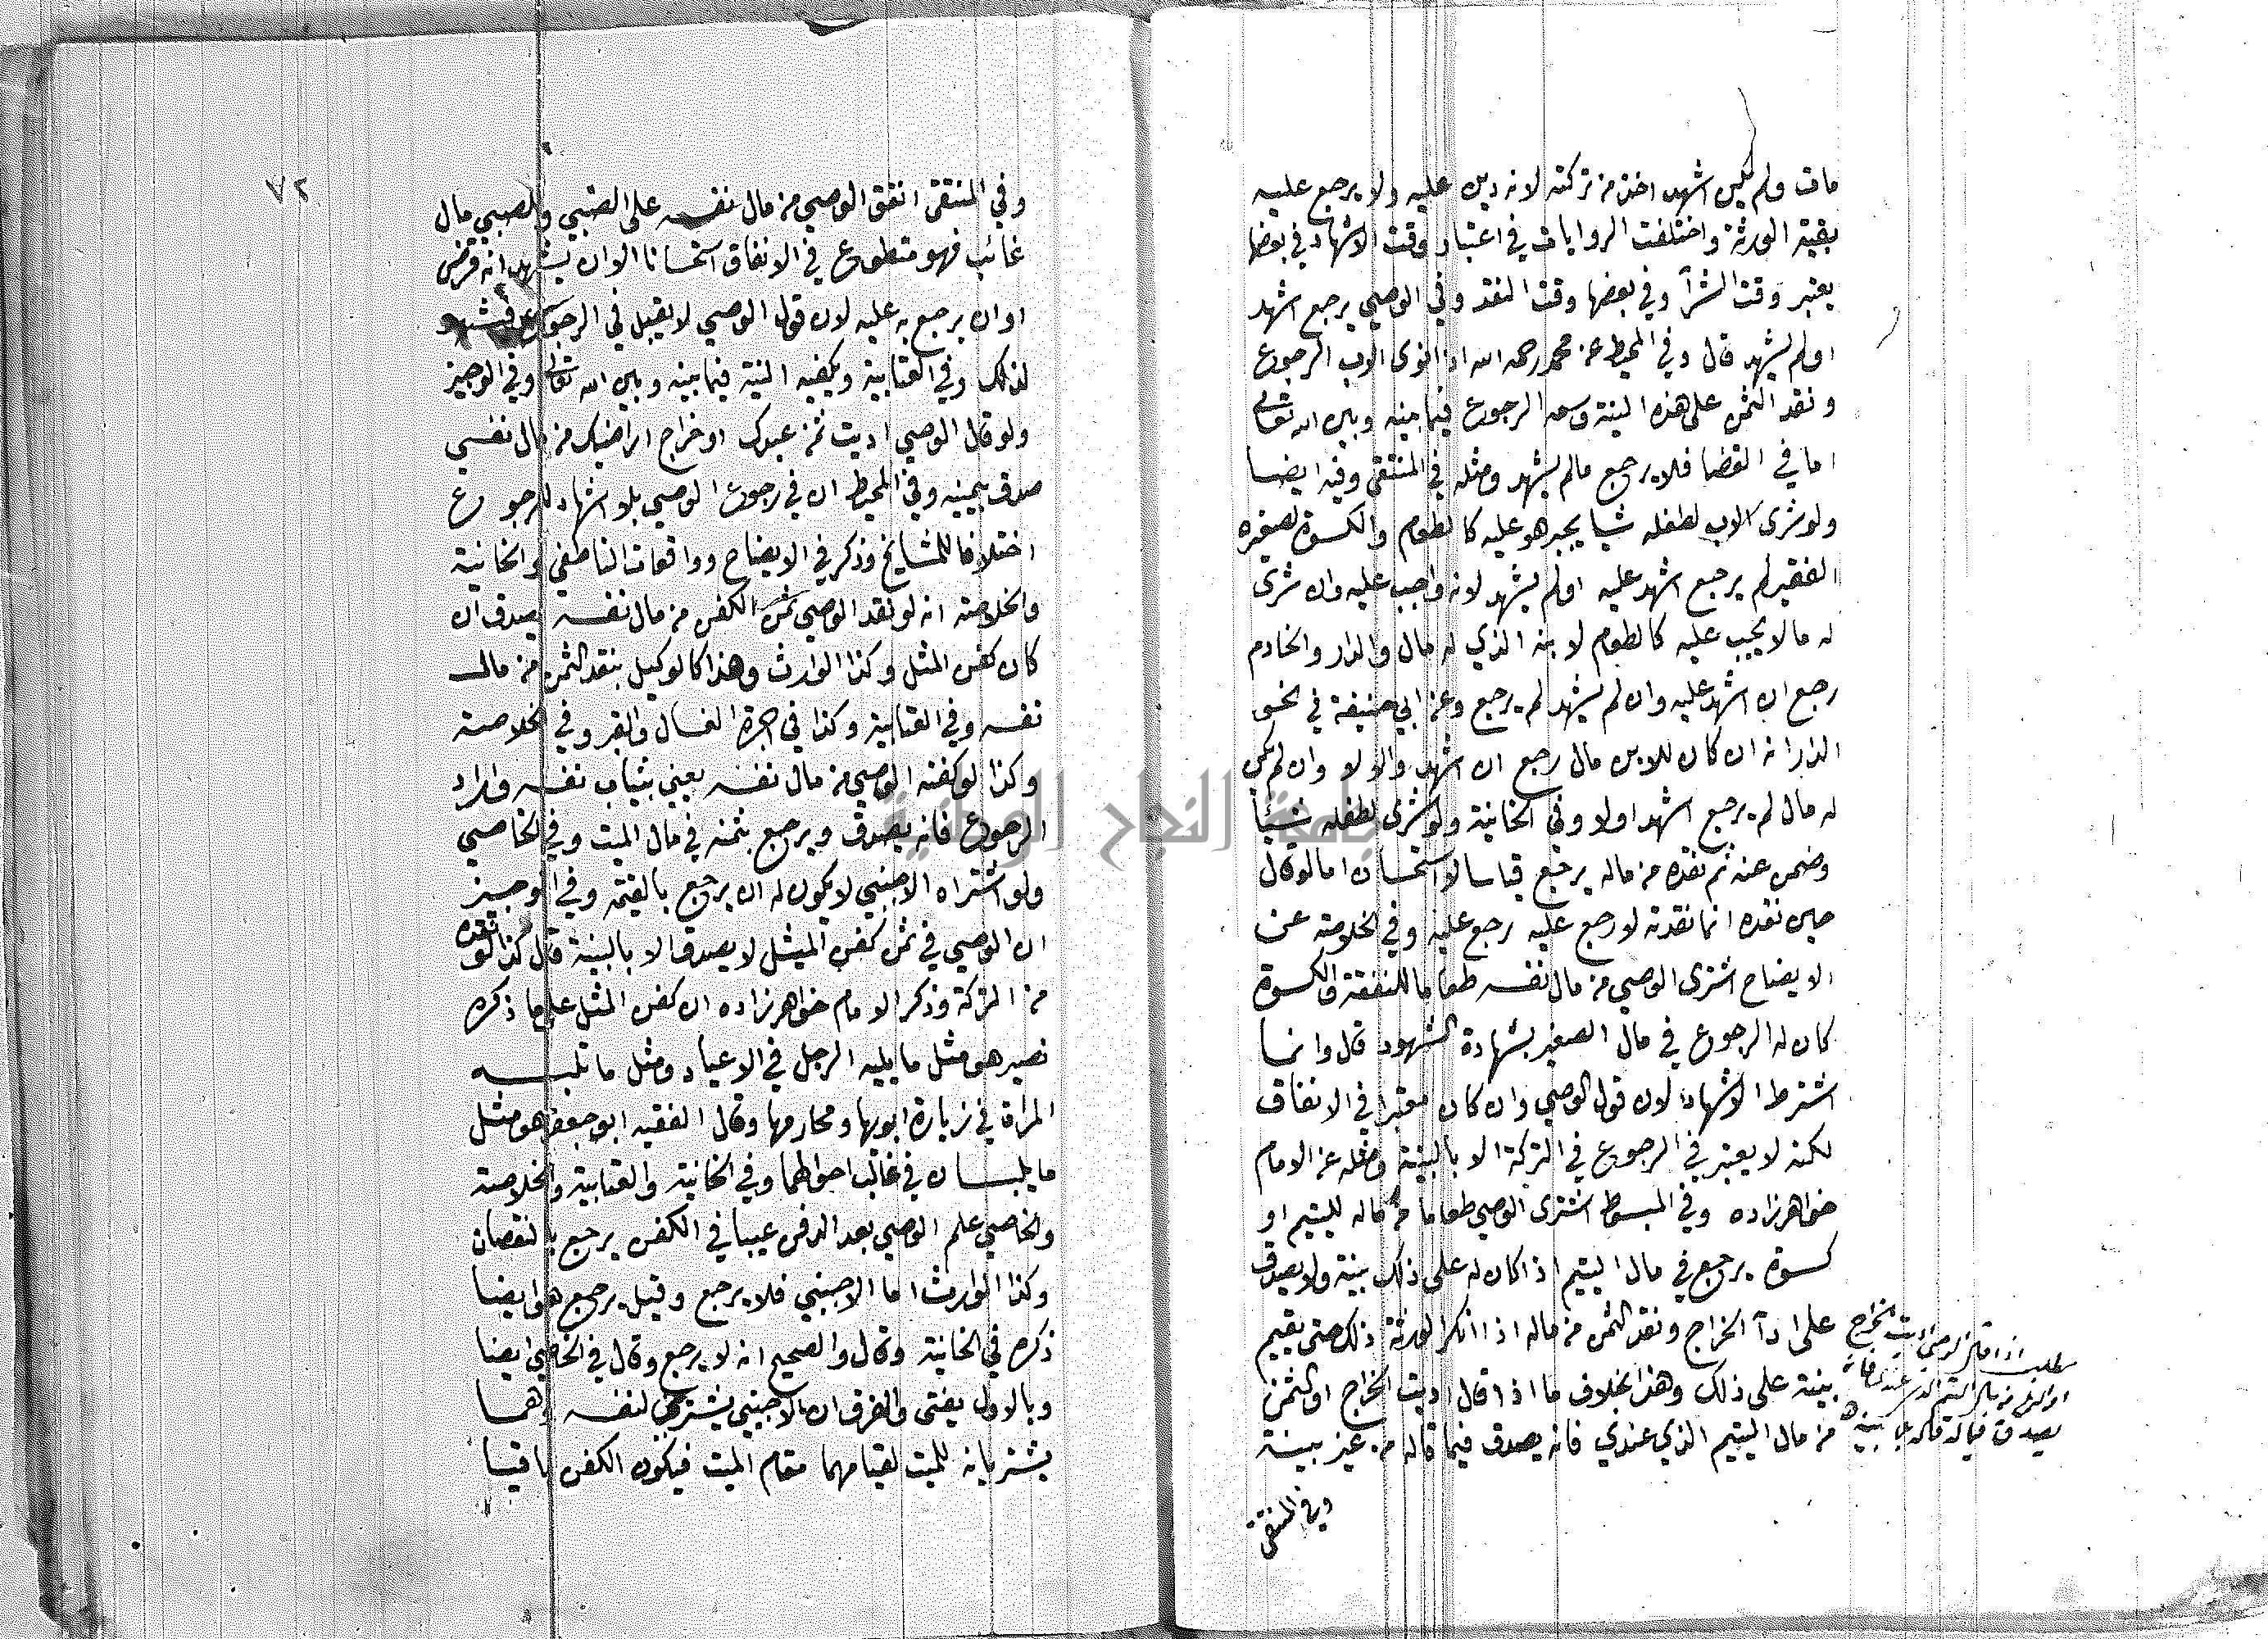 مات ولم يكن اشهد اخذ من تركته لانه دين عليه ولا يرجع عليه
بقية الورثة واختلفت الروايات في اعتبار وقت الاشهاد في بعضها
يعتبر وقت الشرآ وفي بعضها وقت النقد وفي الوصي يرجع اشهد
اولم يشهد قال وفي المحيط عن محمد رحمه الله اذا نوى الاب الرجوع
ونقد الثمن على هذه النية وسعه الرجوع فيما بينه وبين الله تعالى
اما في القضا فلا يرجع مالم يشهد ومثله في المنتقى وفيه ايضا
ولو شرى الاب لطفله شيا يجبر هو عليه كالطعام والكسوة لصغيره
الفقير لم يرجع اشهد عليه اولم يشهد لانه واجب عليه وان شرى
له مالا يجب عليه كالطعام لابنه الذي له مال والدار والخادم
رجع ان اشهد عليه وان لم يشهد لم يرجع وعن ابي حنيفة في نحو
الدار انه ان كان للابن مال رجع ان اشهد والا لا وان لم يكن
له مال لم يرجع اشهد اولا وفي الخانية ولو شرى لطفله شيئا
وضمن عنه ثم نقده من ماله يرجع قياسا لا استحسانا اما لو قال
حين نقده انما نقدته لارجع عليه رجع عليه وفي الخلاصة عن
الايضاح اشترى الوصي من مال نفسه طعاما للنفقة والكسوة
كان له الرجوع في مال الصغير بشهادة الشهود قال وانما
اشترط الاشهاد لان قول الوصي وان كان معتبرا في الانفاق
لكنه لا يعتبر في الرجوع في التركة الا بالبينة ومثله عن الامام
خواهرزاده وفي المبسوط اشترى الوصي طعاما من ماله لليتيم او
كسوة يرجع في مال اليتيم اذا كان له على ذلك بينة ولا يصدق
على ادآ الخراج ونقد الثمن من ماله اذا انكر الورثة ذلك حتى يقيم
بينة على ذلك وهذا بخلاف ما اذا قال اديت الخراج او الثمن
من مال اليتيم الذي عندي فانه يصدق فيما قاله من غير بينة
وفي المنتقى
مطلب اذا قال الوصي اديت الخراج
او الثمن من مال اليتيم الذي عندي فانه
يصدق فيما قاله بلا بينة
٧٢
وفي المنتقى انفق الوصي من مال نفسه على الصبي وللصبي مال
غائب فهو متطوع في الانفاق استحسانا الا ان يشهد انه قرض
او ان يرجع به عليه لان قول الوصي لا يقبل في الرجوع فيشهد
لذلك وفي العتابية ويكفيه النية فيما بينه وبين الله تعالى وفي الوجيز
ولو قال الوصي اديت ثمن عبدك او خراج اراضيك من مال نفسي
صدق بيمينه وفي المحيط ان في رجوع الوصي بلا اشهاد للرجوع
اختلافا للمشايخ وذكر في الايضاح وواقعات الناطفي والخانية
والخلاصة انه لو نقد الوصي ثمن الكفن من مال نفسه يصدق ان
كان كفن المثل وكذا الوارث وهذا كالوكيل بنقد الثمن من مال
نفسه وفي العتابية وكذا في اجرة الغسال والقبر وفي الخلاصة
وكذا لو كفنه الوصي من مال نفسه يعني بثياب نفسه واراد
الرجوع فانه يصدق ويرجع بثمنه في مال الميت وفي الخاصي
ولو اشتراه الاجنبي لا يكون له ان يرجع بالقيمة وفي الوجيز
ان الوصي في ثمن كفن المثل لا يصدق الا بالبينة قال كذا لو نقده
من التركة وذكر الامام خواهرزاده ان كفن المثل على ما ذكره
نصير هو مثل ما يلبه الرجل في الاعياد ومثل ما تلبسه
المراة في زيارة ابويها ومحارمها وقال الفقيه ابو جعفر هو مثل
ما يلبسان في غالب احوالهما وفي الخانية والعتابية والخلاصة
والخاصي علم الوصي بعد الدفن عيبا في الكفن يرجع بالنقصان
وكذا الوارث اما الاجنبي فلا يرجع وقيل يرجع هو ايضا
ذكره في الخانية وقال والصحيح انه لا يرجع وقال في الخاصي ايضا
وبالاول يفتى والفرق ان الاجنبي يشتري لنفسه وهما
يشتريانه للميت لقيامهما مقام الميت فيكون الكفن باقيا
جامعة النجاح الوطنية